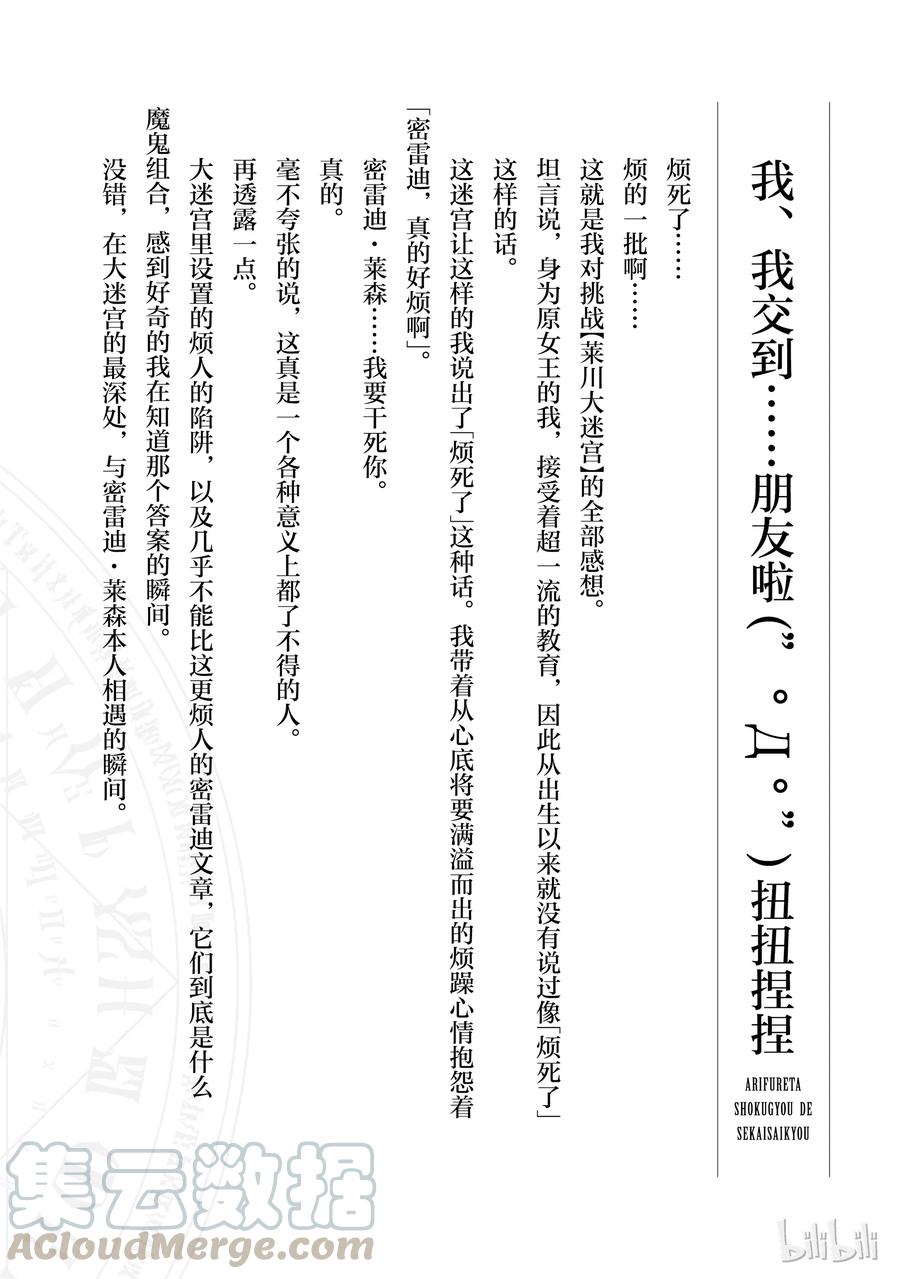 我、我交到……朋友啦(”°Д°”)扭扭捏捏
ARIFURETA
SHOKUGYOU DE
SEKAISAIKYOU
烦死了……
烦的一批啊……
这就是我对挑战【莱川大迷宫】的全部感想。
坦言说，身为原女王的我，接受着超一流的教育，因此从出生以来就没有说过像「烦死了」
这样的话。
这迷宫让这样的我说出了「烦死了」这种话。我带着从心底将要满溢而出的烦躁心情抱怨着
「密雷迪，真的好烦啊」。
密雷迪·莱森……我要干死你。
真的。
毫不夸张的说，这真是一个各种意义上都了不得的人。
再透露一点。
大迷宫里设置的烦人的陷阱，以及几乎不能比这更烦人的密雷迪文章，它们到底是什么
魔鬼组合，感到好奇的我在知道那个答案的瞬间。
没错，在大迷宫的最深处，与密雷迪·莱森本人相遇的瞬间。
集云数据
ACloudMerge.com
bilibili